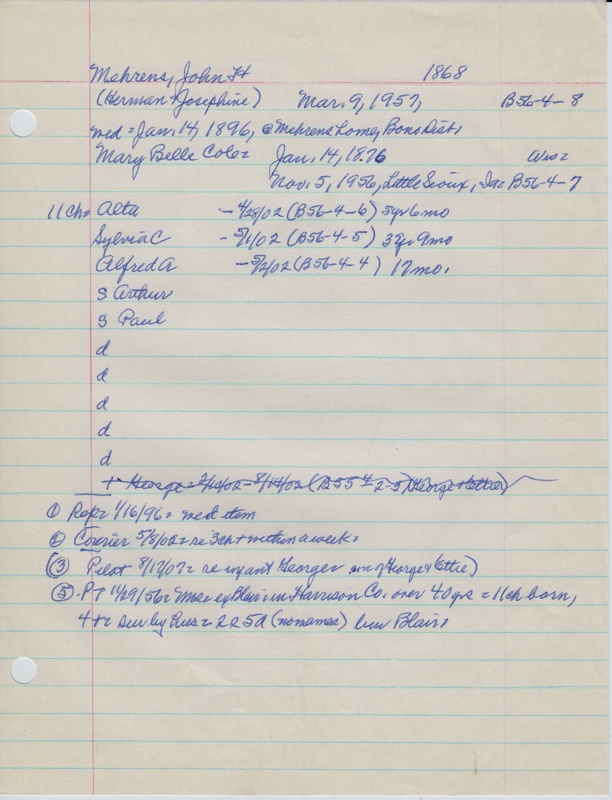 Mehrens, John H 1868
(Herman & Josephine) Mar. 9, 1957, B56-4-8
med = Jan. 14, 1896, @ Mehrens home, Bono Dist.
Mary Belle Cole = Jan. 14, 1876
Nov. 5, 1956, Little Sioux, Ia = B56-4-7
11 ch = Alta - 4/28/02 (B56-4-6) 5yr 6mo
Sylvia C - 5/1/02 (B56-4-5) 3yr 9mo
Alfred A - 5/2/02 (B56-4-4) 17mo.
S Arthur
S Paul
d
d
d
d
d
+ George = 8/14/02 (B55 2-5) George & Lettie)
① Rep = 1/16/96 = med item
② Courier 5/8/02 = re 3ch + within a week.
③ Pilot 8/17/07 = re infant George = son of George & Lettie)
⑤ P T 11/29/56 = Mrs = ex Blair = in Harrison Co. over 40 yrs = 11 ch born,
4 + = sur by hus = 2 s 5 d (no names) bur Blair.